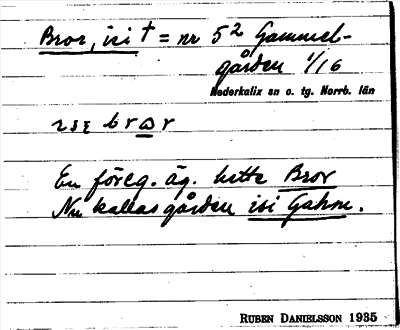 Bror, isi † = nr 5² Gammel-
gården 1/16
Nederkalix sn o. tg. Norrb. län
ɪsɪ brɷr
En föreg. äg. hette Bror
Nu kallas gården isi Gahm.
RUBEN DANIELSSON 1935